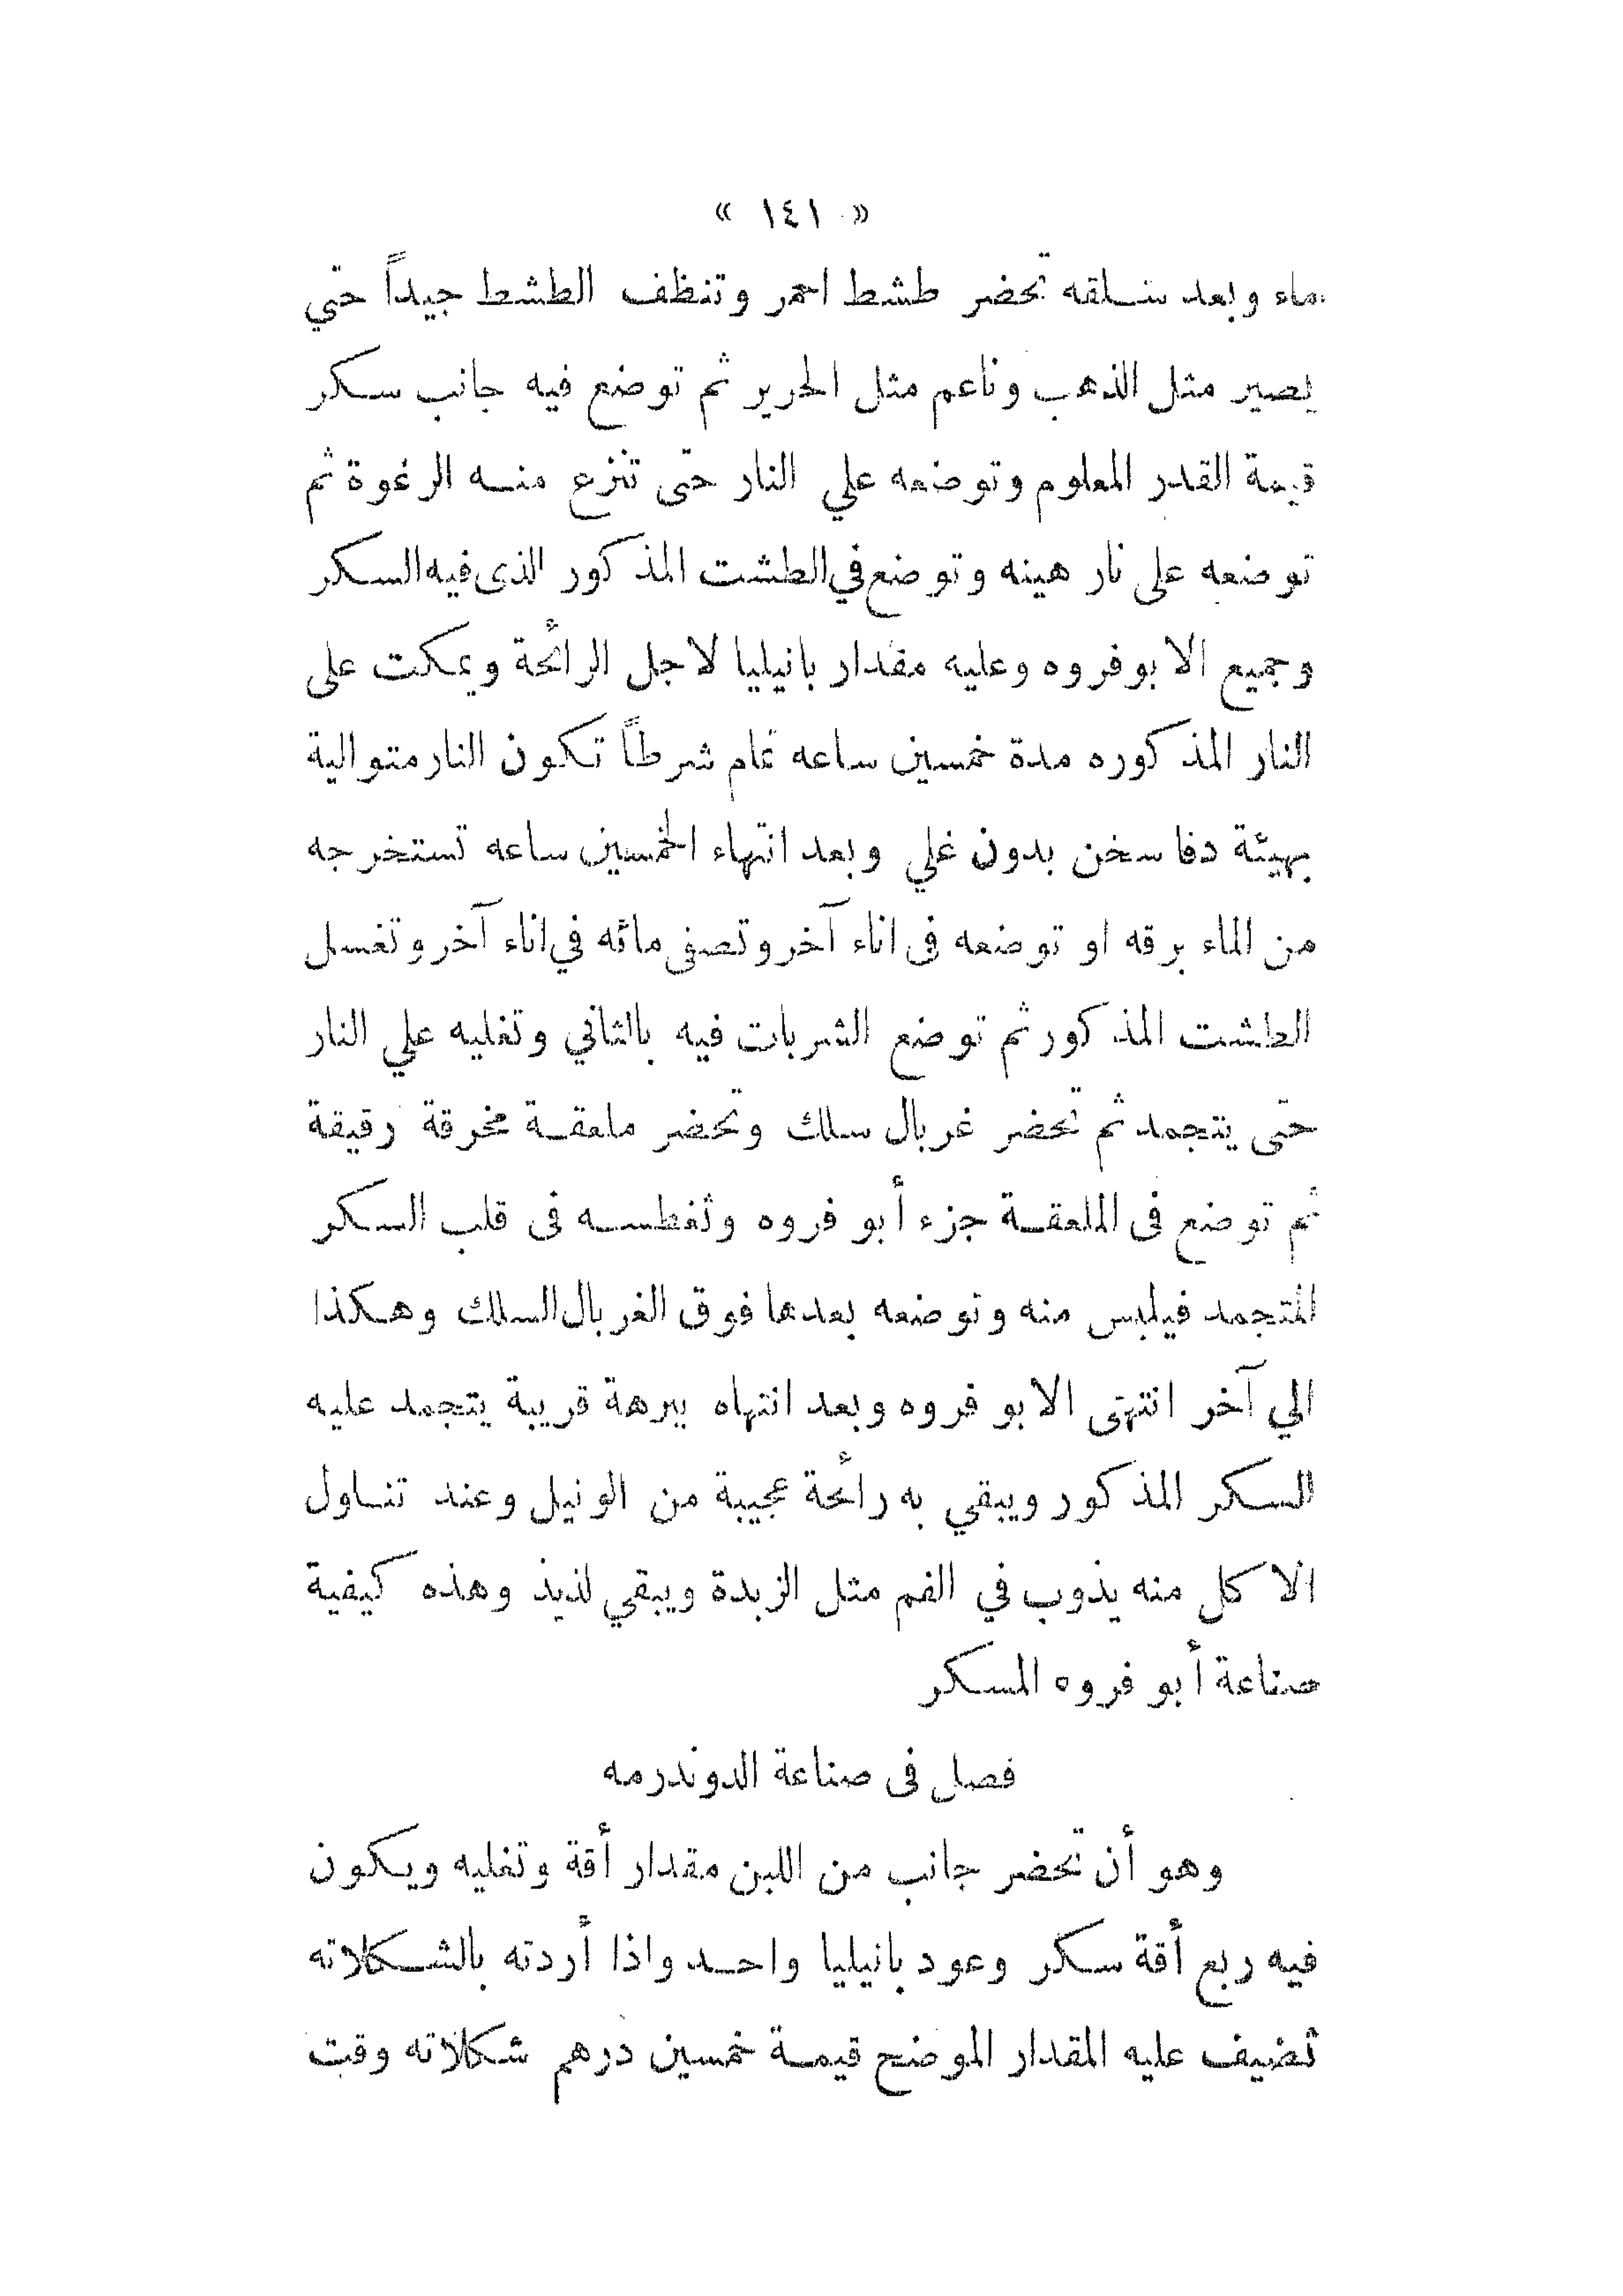 « ١٤١ »
ماء وبعد سلقه تحضر طشط احمر وتنظف الطشط جيداً حتي
يصير مثل الذهب وناعم مثل الحرير ثم توضع فيه جانب سكر
قيمة القدر المعلوم وتوضعه علي النار حتى تنزع منه الرغوة ثم
توضعه على نار هينه وتوضع في الطشت المذكور الذى فيه السكر
وجميع الابوفروه وعليه مقدار بانيليا لاجل الرائحة ويمكت على
النار المذكوره مدة خمسين ساعه تمام شرطاً تكون النار متوالية
بهيئة دفا سخن بدون غلي وبعد انتهاء الخمسين ساعه تستخرجه
من الماء برقه او توضعه فى اناء آخر وتصفى مائه في اناء آخر وتغسل
الطشت المذكور ثم توضع الشربات فيه بالثاني وتغليه علي النار
حتى يتجمد ثم تحضر غربال سلك وتحضر ملعقة مخرقة رقيقة
ثم توضع فى الملعقة جزء أبو فروه وتغطسه فى قلب السكر
المتجمد فيلبس منه وتوضعه بعدها فوق الغربال السلك وهكذا
الي آخر انتهى الابو فروه وبعد انتهاه ببرهة قريبة يتجمد عليه
السكر المذكور ويبقي به رائحة عجيبة من الونيل وعند تناول
الاكل منه يذوب في الفم مثل الزبدة ويبقي لذيذ وهذه كيفية
صناعة أبو فروه المسكر
فصل فى صناعة الدوندرمه
وهو أن تحضر جانب من اللبن مقدار أقة وتغليه ويكون
فيه ربع أقة سكر وعود بانيليا واحد واذا أردته بالشكلاته
تضيف عليه المقدار الموضح قيمة خمسين درهم شكلاته وقت